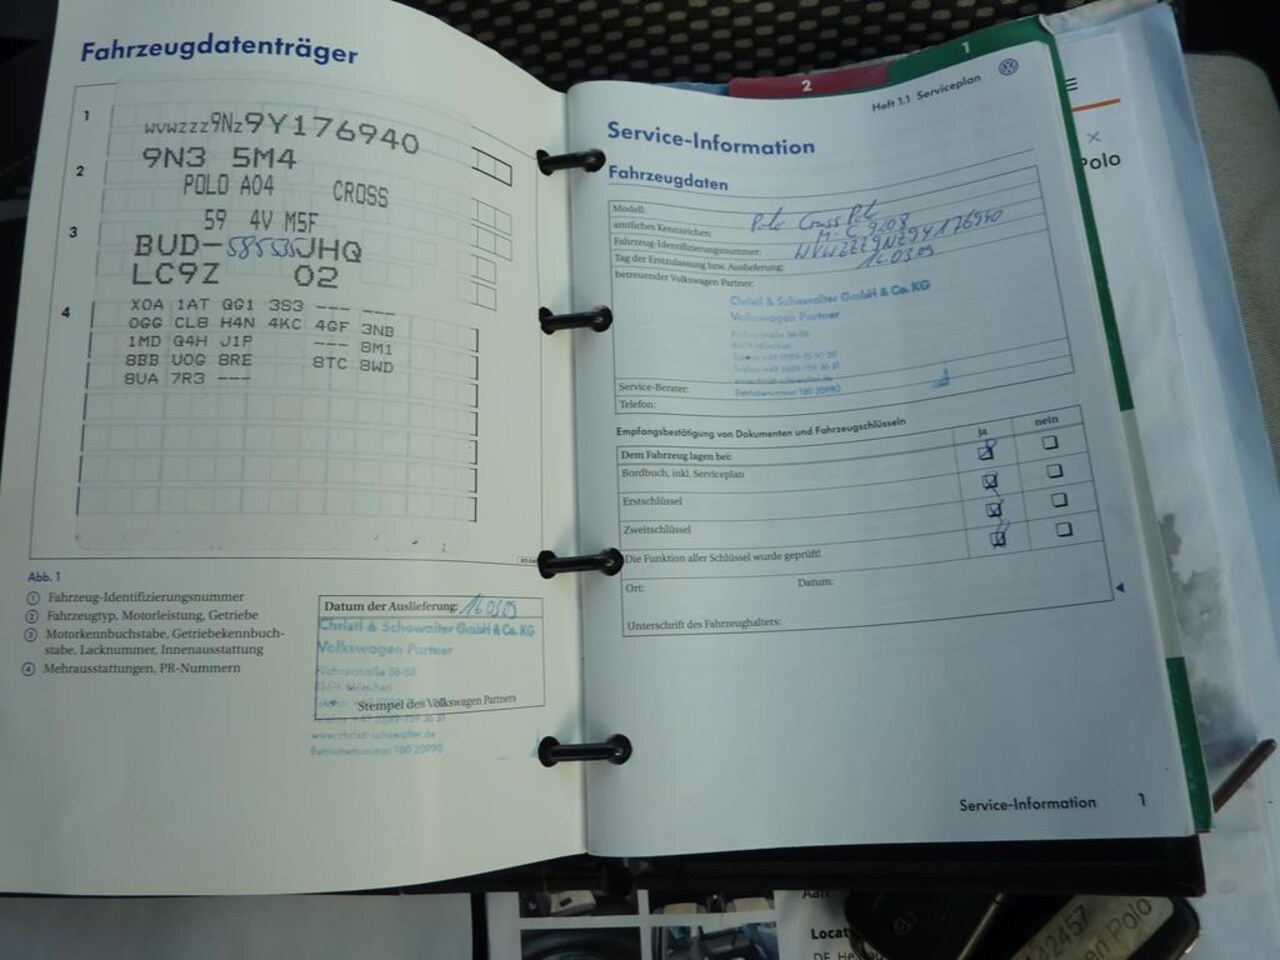 Fahrzeugdatenträger
1
WVWZZZ9NZ9Y176940
2
9N3 5M4
POLO A04 CROSS
59 4V M5F
3
BUD- 585535 JHQ
LC9Z 02
4
X0A 1AT GG1 3S3 --- ---
0GG CL8 H4N 4KC 4GF 3NB
1MD Q4H J1P --- 8M1
8BB U0G 8RE 8TC 8WD
8UA 7R3 ---
Abb. 1
1 Fahrzeug-Identifizierungsnummer
2 Fahrzeugtyp, Motorleistung, Getriebe
3 Motorkennbuchstabe, Getriebekennbuch-
stabe, Lacknummer, Innenausstattung
4 Mehrausstattungen, PR-Nummern
Datum der Auslieferung: 160309
Christl & Schowalter GmbH & Co. KG
Volkswagen Partner
München
Stempel des Volkswagen Partners
www.christl-schowalter.de
Betriebsnummer 180 20990
2
1
Heft 1.1 Serviceplan
Service-Information
Fahrzeugdaten
Modell: Polo Cross Polo
amtliches Kennzeichen: M-C 9208
Fahrzeug-Identifizierungsnummer: WVWZZZ9NZ9Y176940
Tag der Erstzulassung bzw. Auslieferung: 160309
betreuender Volkswagen Partner:
Christl & Schowalter GmbH & Co. KG
Volkswagen Partner
www.christl-schowalter.de
Betriebsnummer 180 20990
Service-Berater:
Telefon:
Empfangsbestätigung von Dokumenten und Fahrzeugschlüsseln
ja nein
Dem Fahrzeug lagen bei:
Bordbuch, inkl. Serviceplan
Erstschlüssel
Zweitschlüssel
Die Funktion aller Schlüssel wurde geprüft!
Ort: Datum:
Unterschrift des Fahrzeughalters:
Service-Information 1
Polo
42457
Polo